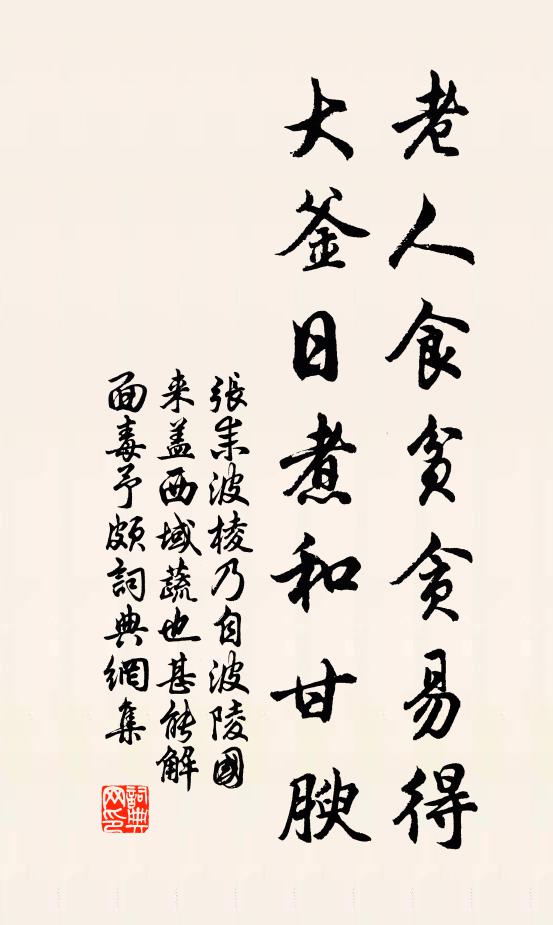 老人食貧貪易得
大釜日煮和甘腴
張耒波棱乃自波陵國
来盖西域蔬也甚能解
面毒予頗詞典網集
詞典
网印